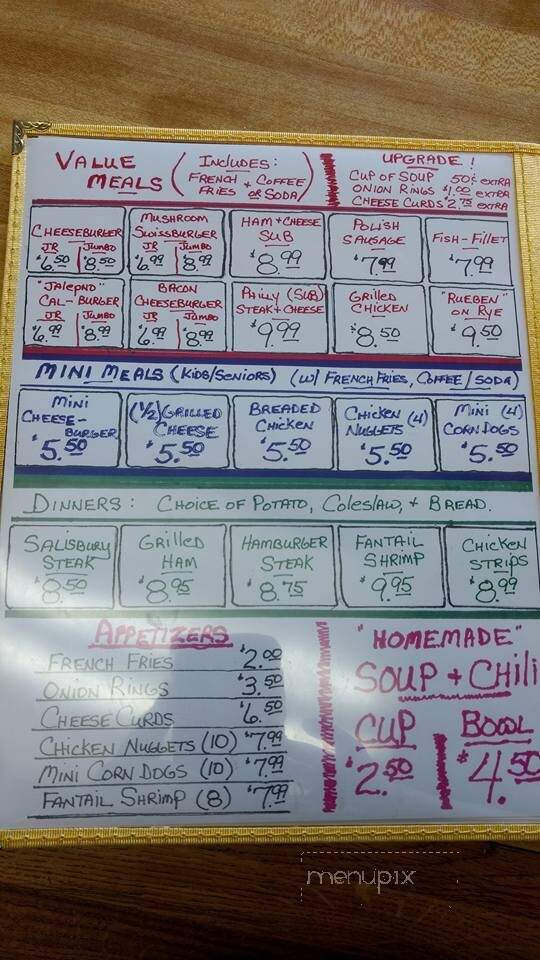 VALUE MEALS (INCLUDES: FRENCH FRIES + COFFEE OR SODA)
UPGRADE!
CUP OF SOUP 50¢ EXTRA
ONION RINGS $1.00 EXTRA
CHEESE CURDS $2.75 EXTRA
CHEESEBURGER
JR JUMBO
$6.50 $8.50
MUSHROOM
SWISSBURGER
JR JUMBO
$6.99 $8.99
HAM + CHEESE
SUB
$8.99
POLISH
SAUSAGE
$7.99
FISH-FILLET
$7.99
"JALEPNO"
CAL-BURGER
JR JUMBO
$6.99 $8.99
BACON
CHEESEBURGER
JR JUMBO
$6.99 $8.99
PHILLY (SUB)
STEAK + CHEESE
$9.99
GRILLED
CHICKEN
$8.50
"RUEBEN"
ON RYE
$9.50
MINI MEALS (KIDS/SENIORS) (W/ FRENCH FRIES, COFFEE/SODA)
MINI
CHEESE-
BURGER
$5.50
(1/2) GRILLED
CHEESE
$5.50
BREADED
CHICKEN
$5.50
CHICKEN (4)
NUGGETS
$5.50
MINI (4)
CORN DOGS
$5.50
DINNERS: CHOICE OF POTATO, COLESLAW, + BREAD.
SALISBURY
STEAK
$8.50
GRILLED
HAM
$8.95
HAMBURGER
STEAK
$8.75
FANTAIL
SHRIMP
$9.95
CHICKEN
STRIPS
$8.99
APPETIZERS
FRENCH FRIES $2.00
ONION RINGS $3.50
CHEESE CURDS $6.50
CHICKEN NUGGETS (10) $7.99
MINI CORN DOGS (10) $7.99
FANTAIL SHRIMP (8) $7.99
"HOMEMADE"
SOUP + CHILI
CUP BOWL
$2.50 $4.50
menupix